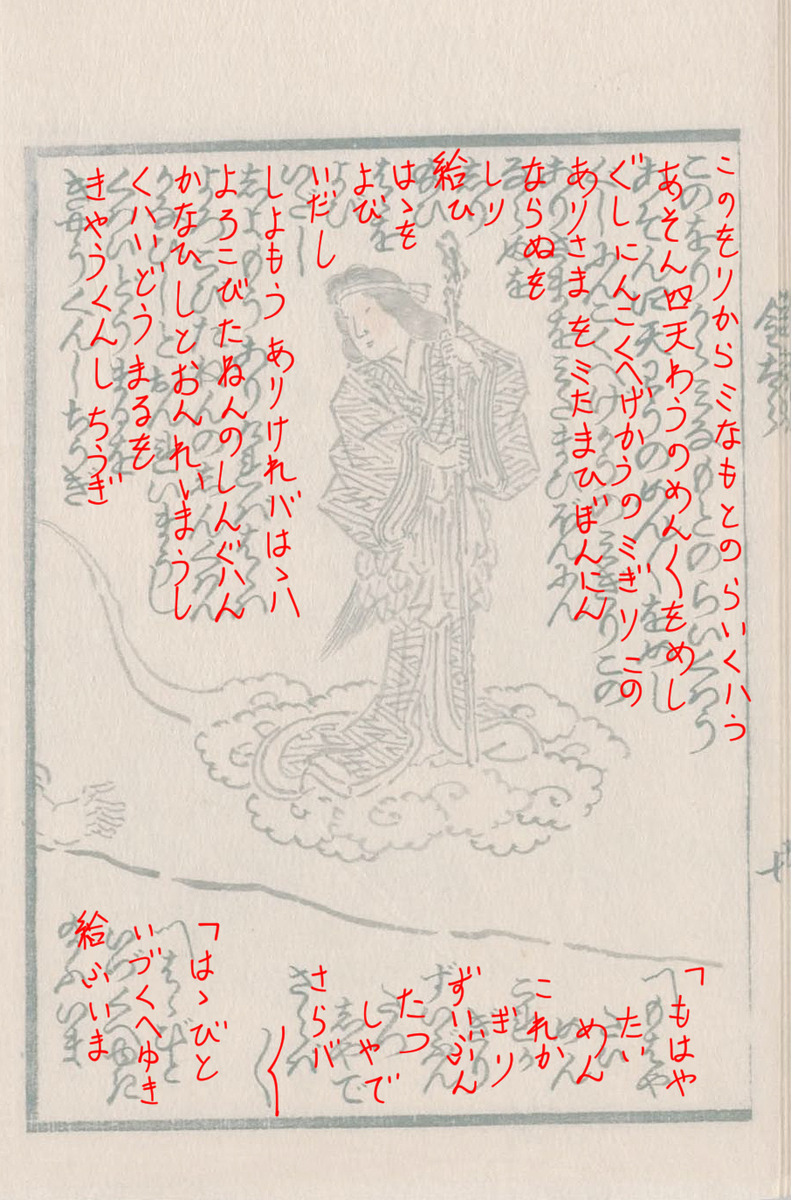 このをりからミなもとのらいくハう
あそん四天わうのめん〱をめし
ぐしにんこくへげかうのミぎりこの
ありさまをミたまひぼんにん
ならぬを
しり
給ひ
はゝを
よび
いだし
しよもうありけれバはゝハ
よろこびたねんのしんぐハん
かなひしとおんれいまうし
くハいどうまるを
きやうくんしちうぎ
「もはや
たい
めん
これか
ぎり
ずいぶん
たつ
しやで
さらバ
〱
「はゝびと
いづくへゆき
給ふいま